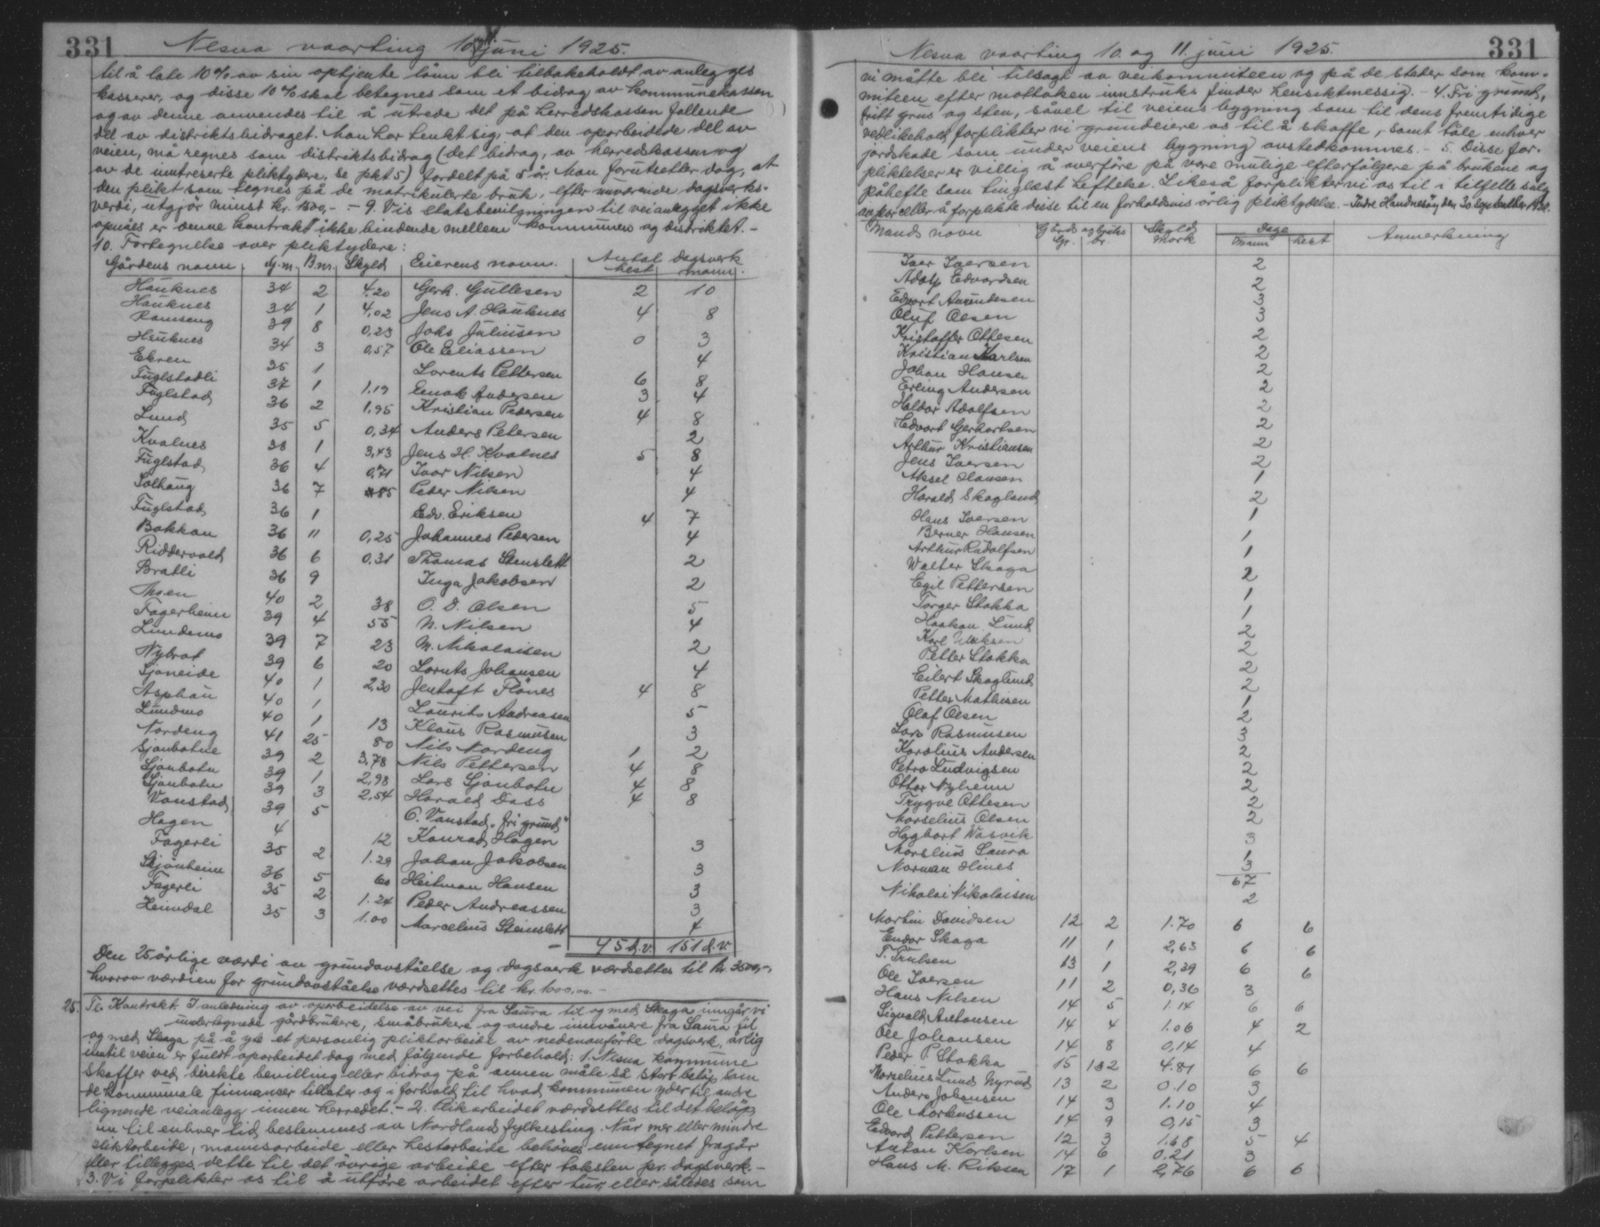 331 Nesna vaarting 10. juni 1925.
til å late 10% av sin optjente lönn bli tilbakeholdt av anleggs
kasserer, og disse 10% skal betegnes som et bidrag av kommunekassen
og av denne anvendes til å utrede det på herredskassen fallende
del av distriktsbidraget. Man har tenkt sig at den oparbeidede del av
veien, må regnes som distriktsbidrag (det bidrag, av herredskassen og
av de umtreserte pliktydere, se pkt 5) fordelt på 5 år. Man forutsetter dog, at
den plikt som tegnes på de matrikulerte bruk, efter nuværende dagsverks-
verdi, utgjör minst kr. - 9. Vis statsbevilgningen til veianlegget ikke
opnåes er denne kontrakt ikke bindende mellem kommunen og distriktet. -
10. Fortegnelse over pliktydere:
Gårdens navn G.nr. B.nr. Skyld Eierens navn. Antal dagsverk
hest mann.
Hauknes 34 2 4.20 Gerh. Gullesen 2 10
Hauknes 34 1 4,02 Jens A. Hauknes 4 8
Ramseng 39 8 0,23 Johs Juliusen
Hauknes 34 3 0,57 Ole Eliassen 0 3
Ekren 35 1 Lorents Pettersen 4
Fuglstadli 37 1 1.19 Enok Andersen 6 8
Fuglstad 36 2 1,95 Kristian Pedersen 3 4
Lund 35 5 0,34 Anders Petersen 4 8
Kvalnes 38 1 3,43 Jens H. Kvalnes 2
Fuglstad 36 4 0,71 Ivar Nilsen 5 8
Solhaug 36 7 85 Peder Nilsen 4
Fuglstad 36 1 Edv. Eriksen 4
Bakkan 36 11 0,25 Johannes Pedersen 4 7
Riddervold 36 6 0,31 Thomas Stenslett 4
Bratli 36 9 Inga Jakobsen 2
Moen 40 2 38 O. D. Olsen 2
Fagerheim 39 4 55 N. Nilsen 5
Lundmo 39 7 23 M. Nikolaisen 4
Nybrot 39 6 20 Lornts Johansen 2
Sjöneide 40 1 2,30 Jentoft Flönes 4
Asphau 40 1 Laurits Andreasen 4 8
Lundmo 40 1 13 Klaus Rasmusen 5
Nordeng 41 25 80 Nils Nordeng 3
Sjönbotne 39 2 3,78 Nils Pettersen 1 2
Sjönbotn 39 1 2,98 Lars Sjönbotn 4 8
Sjönbotn 39 3 2,54 Harald Dass 4 8
Vanstad 39 5 C. Vanstad „fri grund" 4 8
Hagen 4 12 Konrad Hagen
Fagerli 35 2 1.29 Johan Jakobsen 3
Skjönheim 36 5 60 Heitman Hansen 3
Fagerli 35 2 1.24 Peder Andreassen 3
Heimdal 35 3 1.00 Marcelius Steinslett 3
4
45 d.v. 151 d.v.
Den 25 årlige verdi av grundavståelse og dagsverk verdsettes til kr. 3500,-,
hvorav verdien for grundavståelse verdsettes til kr. 1000,00. -
25. Tl. Kontrakt. I anledning av oparbeidelse av vei fra Saura til og med Skaga inngår vi
undertegnede gårdbrukere, småbrukere og andre innvånere fra Saura til
og med Skaga på å yde et personlig pliktarbeide av nedenanförte dagsverk, årlig
inntil veien er fuldt oparbeidet dog med fölgende forbehold: 1. Nesna kommune
skaffer ved direkte bevilling eller bidrag på annen måte så stort belöp som
de kommunale finanser tillater og i forhold til hvad kommunen yder til andre
lignende veianlegg innen herredet. - 2. Pliktarbeidet værdsettes til det belöp
som til enhver tid bestemmes av Nordland fylkesting. Når mer eller mindre
pliktarbeide, mannsarbeide eller hestarbeide behöves enn tegnet fragår
eller tillegges dette til det övrige arbeide efter taksten pr. dagsverk. -
3. Vi forplikter os til å utföre arbeidet efter tur, eller således som
Nesna vaarting 10. og 11. juni 1925. 331
vi måtte bli tilsagt av veikommiteen og på de steder som kom-
miteen efter mottaken instruks finder hensiktmessig. - 4. Fri grund,
fritt grus og sten, såvel til veiens bygning som til dens fremtidige
vedlikehold forplikter vi grundeiere os til å skaffe, samt tåle enhver
jordskade som under veiens bygning avstedkommes. - 5. Disse for-
pliktelser er villig å overföre på våre mulige efterfölgere på brukene og
påhefte som tinglest heftelse. Likeså forplikter vi os til i tilfelle salg
av part eller å forplikte disse til en forholdsvis årlig pliktydelse. - Indre Handnesöy den 30 september 1924.
Mands navn Gårds og bruks Skyld Dage Anmerkning
Gr. br. Mark mann hest
Iver Iversen 2
Adolf Edvardsen 2
Edvart Amundesen 3
Oluf Olsen 3
Kristoffer Ottesen 2
Kristian Karlsen 2
Johan Hansen 2
Erling Andersen 2
Haldor Adolfsen 2
Edvart Gerhartsen 2
Arthur Kristiansen 2
Jens Iversen 2
Aksel Hansen 1
Harald Skoglund 2
Hans Iversen 1
Berner Hansen 1
Arthur Rudolfsen 1
Walter Skaga 2
Egil Pettersen 1
Torger Stokka 1
Haakon Lund 2
Karl 2
Petter Stokka 2
Eilert Skoglund 2
Petter Mathisen 1
Olaf Olsen 2
Lars Rasmusen 3
Karolius Andersen 2
Petro Ludvigsen 2
Ottar Nyheim 2
Trygve Ottesen 2
Morselius Olsen 2
Hagbart Vasvik 3
Morslius Saura 1
Norman Hines 3
67
Nikolai Nikolaisen 2
Martin Davidsen 12 2 1.70 6 6
Endor Skaga 11 1 2,63 6 6
T. Trulsen 13 1 2,39 6 6
Ole Iversen 11 2 0,36 3
Hans Nilsen 14 5 1.14 6 6
Sigvald Antonsen 14 4 1.06 4 2
Ole Johansen 14 8 0,14 4
Peder P. Stokka 15 1 2 4.81 6 6
Morselius Lund Nyrud 13 2 0.10 3
Anders Johansen 14 3 1.10 4
Ole Markussen 14 9 0,15 3
Edvard Pettersen 12 3 1.68 5 4
Anton Karlsen 14 6 0.21 3
Hans M. Riksen 17 1 2,76 6 6